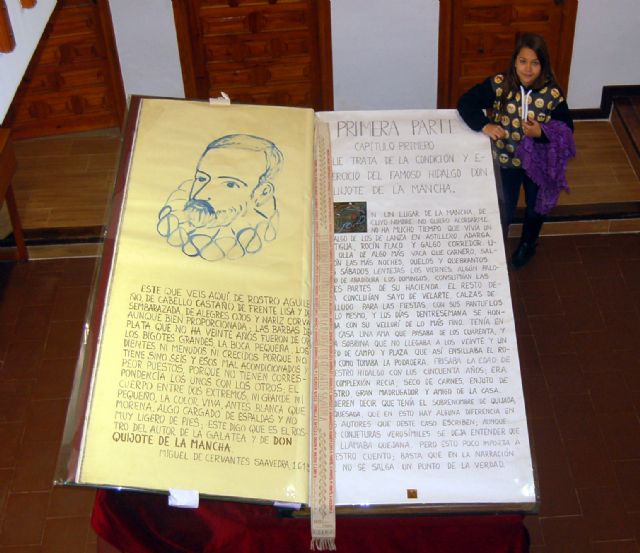 ESTE QUE VEIS AQUÍ, DE ROSTRO AGUILE
ÑO DE CABELLO CASTAÑO DE FRENTE LISA Y DE
SEMBARAZADA, DE ALEGRES OJOS Y NARIZ CORVA
AUNQUE BIEN PROPORCIONADA, LAS BARBAS DE
PLATA QUE NO HA VEINTE AÑOS FUERON DE
LOS BIGOTES GRANDES LA BOCA PEQUEÑA LOS
DIENTES NI MENUDOS NI CRECIDOS PORQUE NO
TIENE SINO SEIS Y ESOS MAL ACONDICIONADOS Y
PEOR PUESTOS, PORQUE NO TIENEN CORRES-
PONDENCIA LOS UNOS CON LOS OTROS; EL
CUERPO ENTRE DOS EXTREMOS, NI GRANDE NI
PEQUEÑO, LA COLOR VIVA ANTES BLANCA QUE
MORENA, ALGO CARGADO DE ESPALDAS Y NO
MUY LIGERO DE PIES; ESTE DIGO QUE ES EL ROS-
TRO DEL AUTOR DE LA GALATEA Y DE DON
QUIJOTE DE LA MANCHA.
MIGUEL DE CERVANTES SAAVEDRA
PRIMERA PARTE
CAPÍTULO PRIMERO
UE TRATA DE LA CONDICIÓN Y E-
ERCICIO DEL FAMOSO HIDALGO DON
UIJOTE DE LA MANCHA.
N UN LUGAR DE LA MANCHA DE
CUYO NOMBRE NO QUIERO ACORDARME
NO HA MUCHO TIEMPO QUE VIVÍA UN
ALGO DE LOS DE LANZA EN ASTILLERO ADARGA
TIGUA, ROCÍN FLACO Y GALGO CORREDOR. U
OLLA DE ALGO MÁS VACA QUE CARNERO, SAL-
ÓN LAS MÁS NOCHES, DUELOS Y QUEBRANTOS
S SÁBADOS LENTEJAS LOS VIERNES, ALGÚN PALO-
O DE AÑADIDURA LOS DOMINGOS, CONSUMÍAN LAS
ES PARTES DE SU HACIENDA. EL RESTO DE-
CONCLUÍAN SAYO DE VELARTE, CALZAS DE
LLUDO PARA LAS FIESTAS CON SUS PANTUFLOS
LO MESMO, Y LOS DÍAS DENTRESEMANA SE HON-
A CON SU VELLORÍ DE LO MÁS FINO. TENÍA EN
CASA UNA AMA QUE PASABA DE LOS CUARENTA, Y
A SOBRINA QUE NO LLEGABA A LOS VEINTE Y UN
O DE CAMPO Y PLAZA QUE ASÍ ENSILLABA EL RO-
COMO TOMABA LA PODADERA. FRISABA LA EDAD DE
ESTRO HIDALGO CON LOS CINCUENTA AÑOS; ERA
COMPLEXIÓN RECIA, SECO DE CARNES, ENJUTO DE
STRO, GRAN MADRUGADOR Y AMIGO DE LA CASA.
IEREN DECIR QUE TENÍA EL SOBRENOMBRE DE QUIJADA,
QUESADA QUE EN ESTO HAY ALGUNA DIFERENCIA EN
S AUTORES QUE DESTE CASO ESCRIBEN, AUNQUE
CONJETURAS VEROSÍMILES SE DEJA ENTENDER QUE
LLAMABA QUEJANA. PERO ESTO POCO IMPORTA A
ESTRO CUENTO; BASTA QUE EN LA NARRACIÓN
NO SE SALGA UN PUNTO DE LA VERDAD.